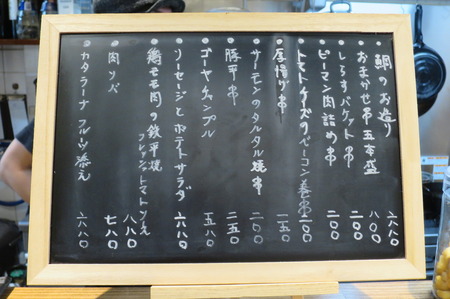 鯛のお造り 六八〇
おまかせ串五本盛 八〇〇
しらすバケット串 二〇〇
ピーマン肉詰め串 二〇〇
トマトチーズのベーコン巻串 二〇〇
厚揚げ串 一五〇
サーモンのタルタル焼串 二〇〇
豚平串 二五〇
ゴーヤチャンプル 五八〇
ソーセージとポテトサラダ 六八〇
鶏モモ肉の鉄平焼
フレッシュトマトソース 八八〇
肉ソバ 七八〇
カタラーナ フルーツ添え 六八〇